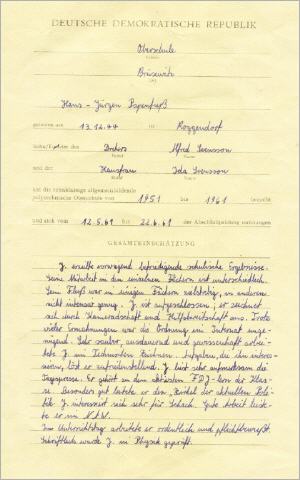 DEUTSCHE DEMOKRATISCHE REPUBLIK
Oberschule
Brüsewitz
Hans-Jürgen
geboren am 13.12.44 in Roggendorf
Sohn/Tochter des Drehers Alfred Svensson
und der Hausfrau Ida Svensson
hat die zehnklassige allgemeinbildende
polytechnische Oberschule von 1951 bis 1961 besucht
und sich vom 12.5.61 bis 22.6.61 der Abschlußprüfung unterzogen
GESAMTEINSCHÄTZUNG
J. erzielte vorwiegend befriedigende schulische Ergebnisse.
Seine Mitarbeit in den einzelnen Fächern ist unterschiedlich.
Sein Fleiß war in einigen Fächern vielseitig, in anderen
nicht intensiv genug. J. ist aufgeschlossen, er zeichnet
sich durch Kameradschaft und Hilfsbereitschaft aus. Trotz
vieler Ermahnungen war die Ordnung im Internat unge-
nügend. Sehr sauber, ausdauernd und gewissenhaft arbei-
tete J. im Technischen Zeichnen. Aufgaben, die ihn interes-
sieren, löst er zufriedenstellend. J. liest sehr aufmerksam die
Tagespresse. Er gehört zu den aktivsten FDJ-lern der Klas-
se. Besonders gut leitete er den Zirkel der aktuellen Poli-
tik. J. interessiert sich sehr für Schach. Gute Arbeit leiste-
te er im NAW.
Im Unterrichtstag arbeitete er ordentlich und pflichtbewußt.
Schriftlich wurde J. in Physik geprüft.